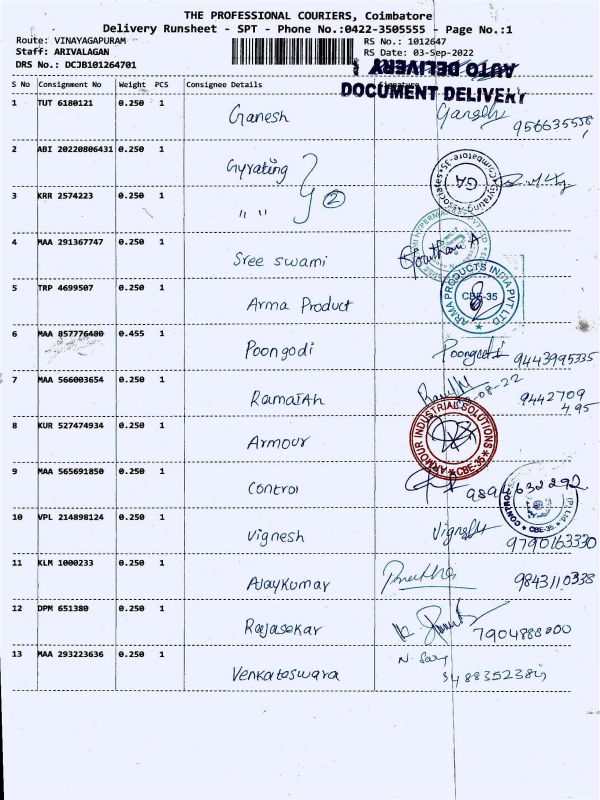 THE PROFESSIONAL COURIERS, Coimbatore
Delivery Runsheet - SPT - Phone No.:0422-3505555 - Page No.:1
Route: VINAYAGAPURAM
Staff: ARIVALAGAN
DRS No.: DCJB101264701
RS No.: 1012647
RS Date: 03-Sep-2022
AUTO DELIVERY
DOCUMENT DELIVERY
S No Consignment No Weight PCS Consignee Details
1 TUT 6180121 0.250 1 Ganesh Ganesh
2 ABI 20220806431 0.250 1 Gyrating
GA
3 KRR 2574223 0.250 1 " " 2
4 MAA 291367747 0.250 1 Sree swami
5 TRP 4699507 0.250 1 Arma Product
ARMA PRODUCTS INDIA PVT LTD CBE-35
6 MAA 857776480 0.455 1 Poongodi 9443995335
7 MAA 566003654 0.250 1 Ramaiah 9442709
495
8 KUR 527474934 0.250 1 Armour
ARMOUR INDUSTRIAL SOLUTIONS CBE-35
9 MAA 565691850 0.250 1 Control
10 VPL 214898124 0.250 1 Vignesh Vignesh
9790163330
11 KLM 1000233 0.250 1 Ajaykumar 9843110338
12 DPM 651380 0.250 1 Rajasekar
13 MAA 293223636 0.250 1 Venkateswara